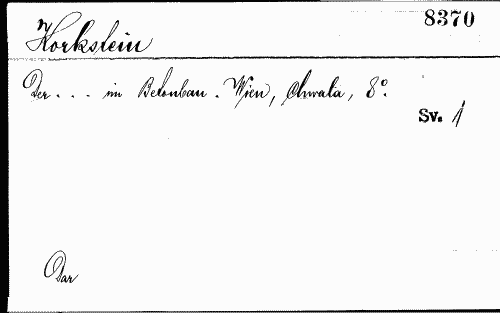 8370
Korkstein
Der . . . im Betonbau. Wien, Chwala, 8°.
Sv. 1
Dar